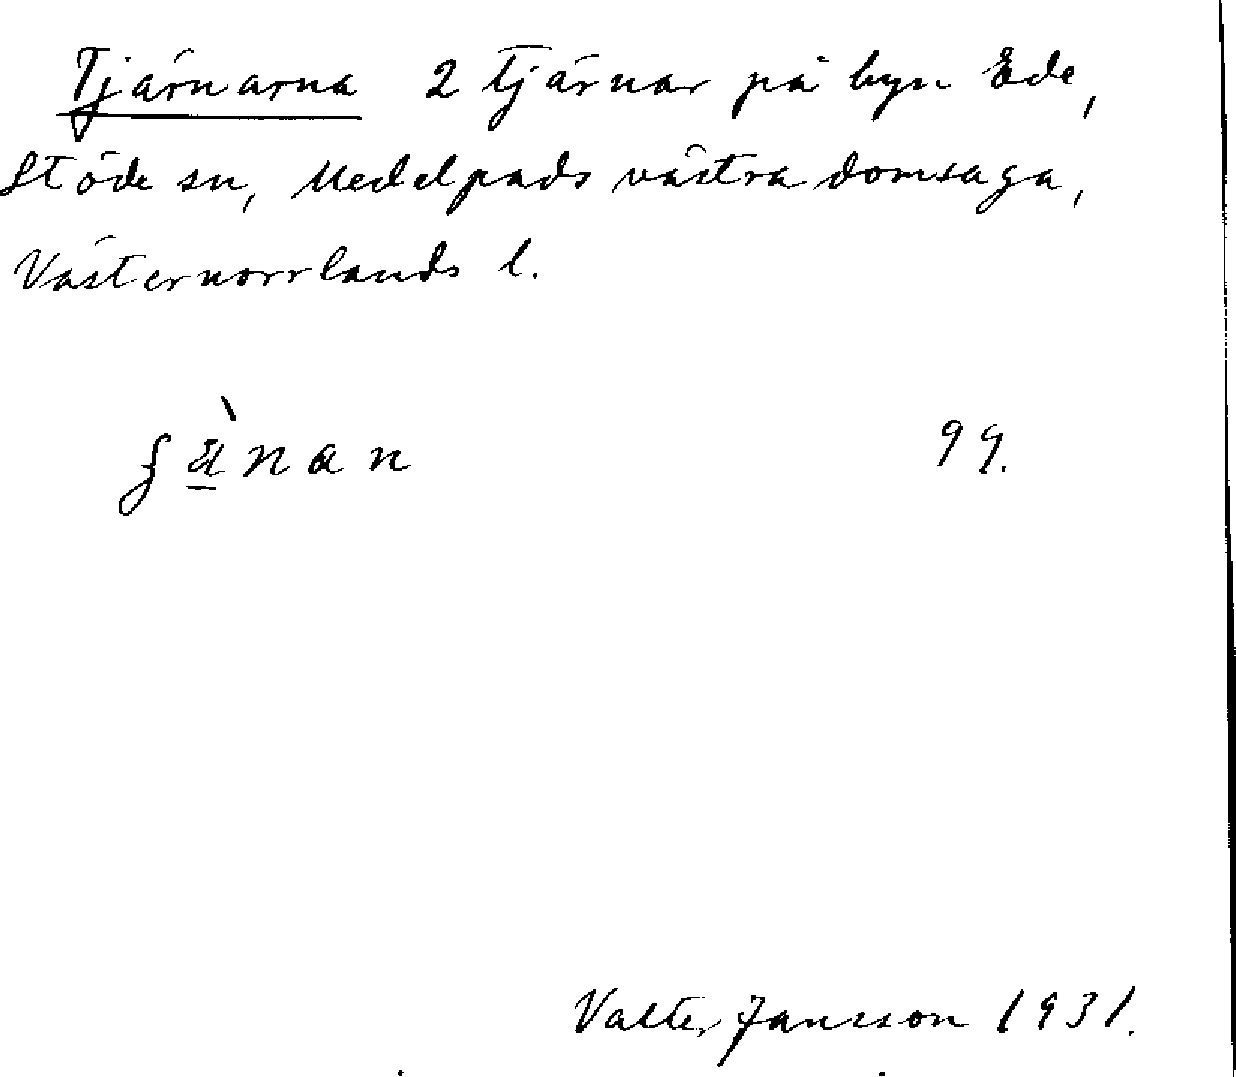 Tjärnarna 2 tjärnar på byn Ede,
Stöde sn, Medelpads västra domsaga,
Västernorrlands l.
99.
Valter Jansson 1931.